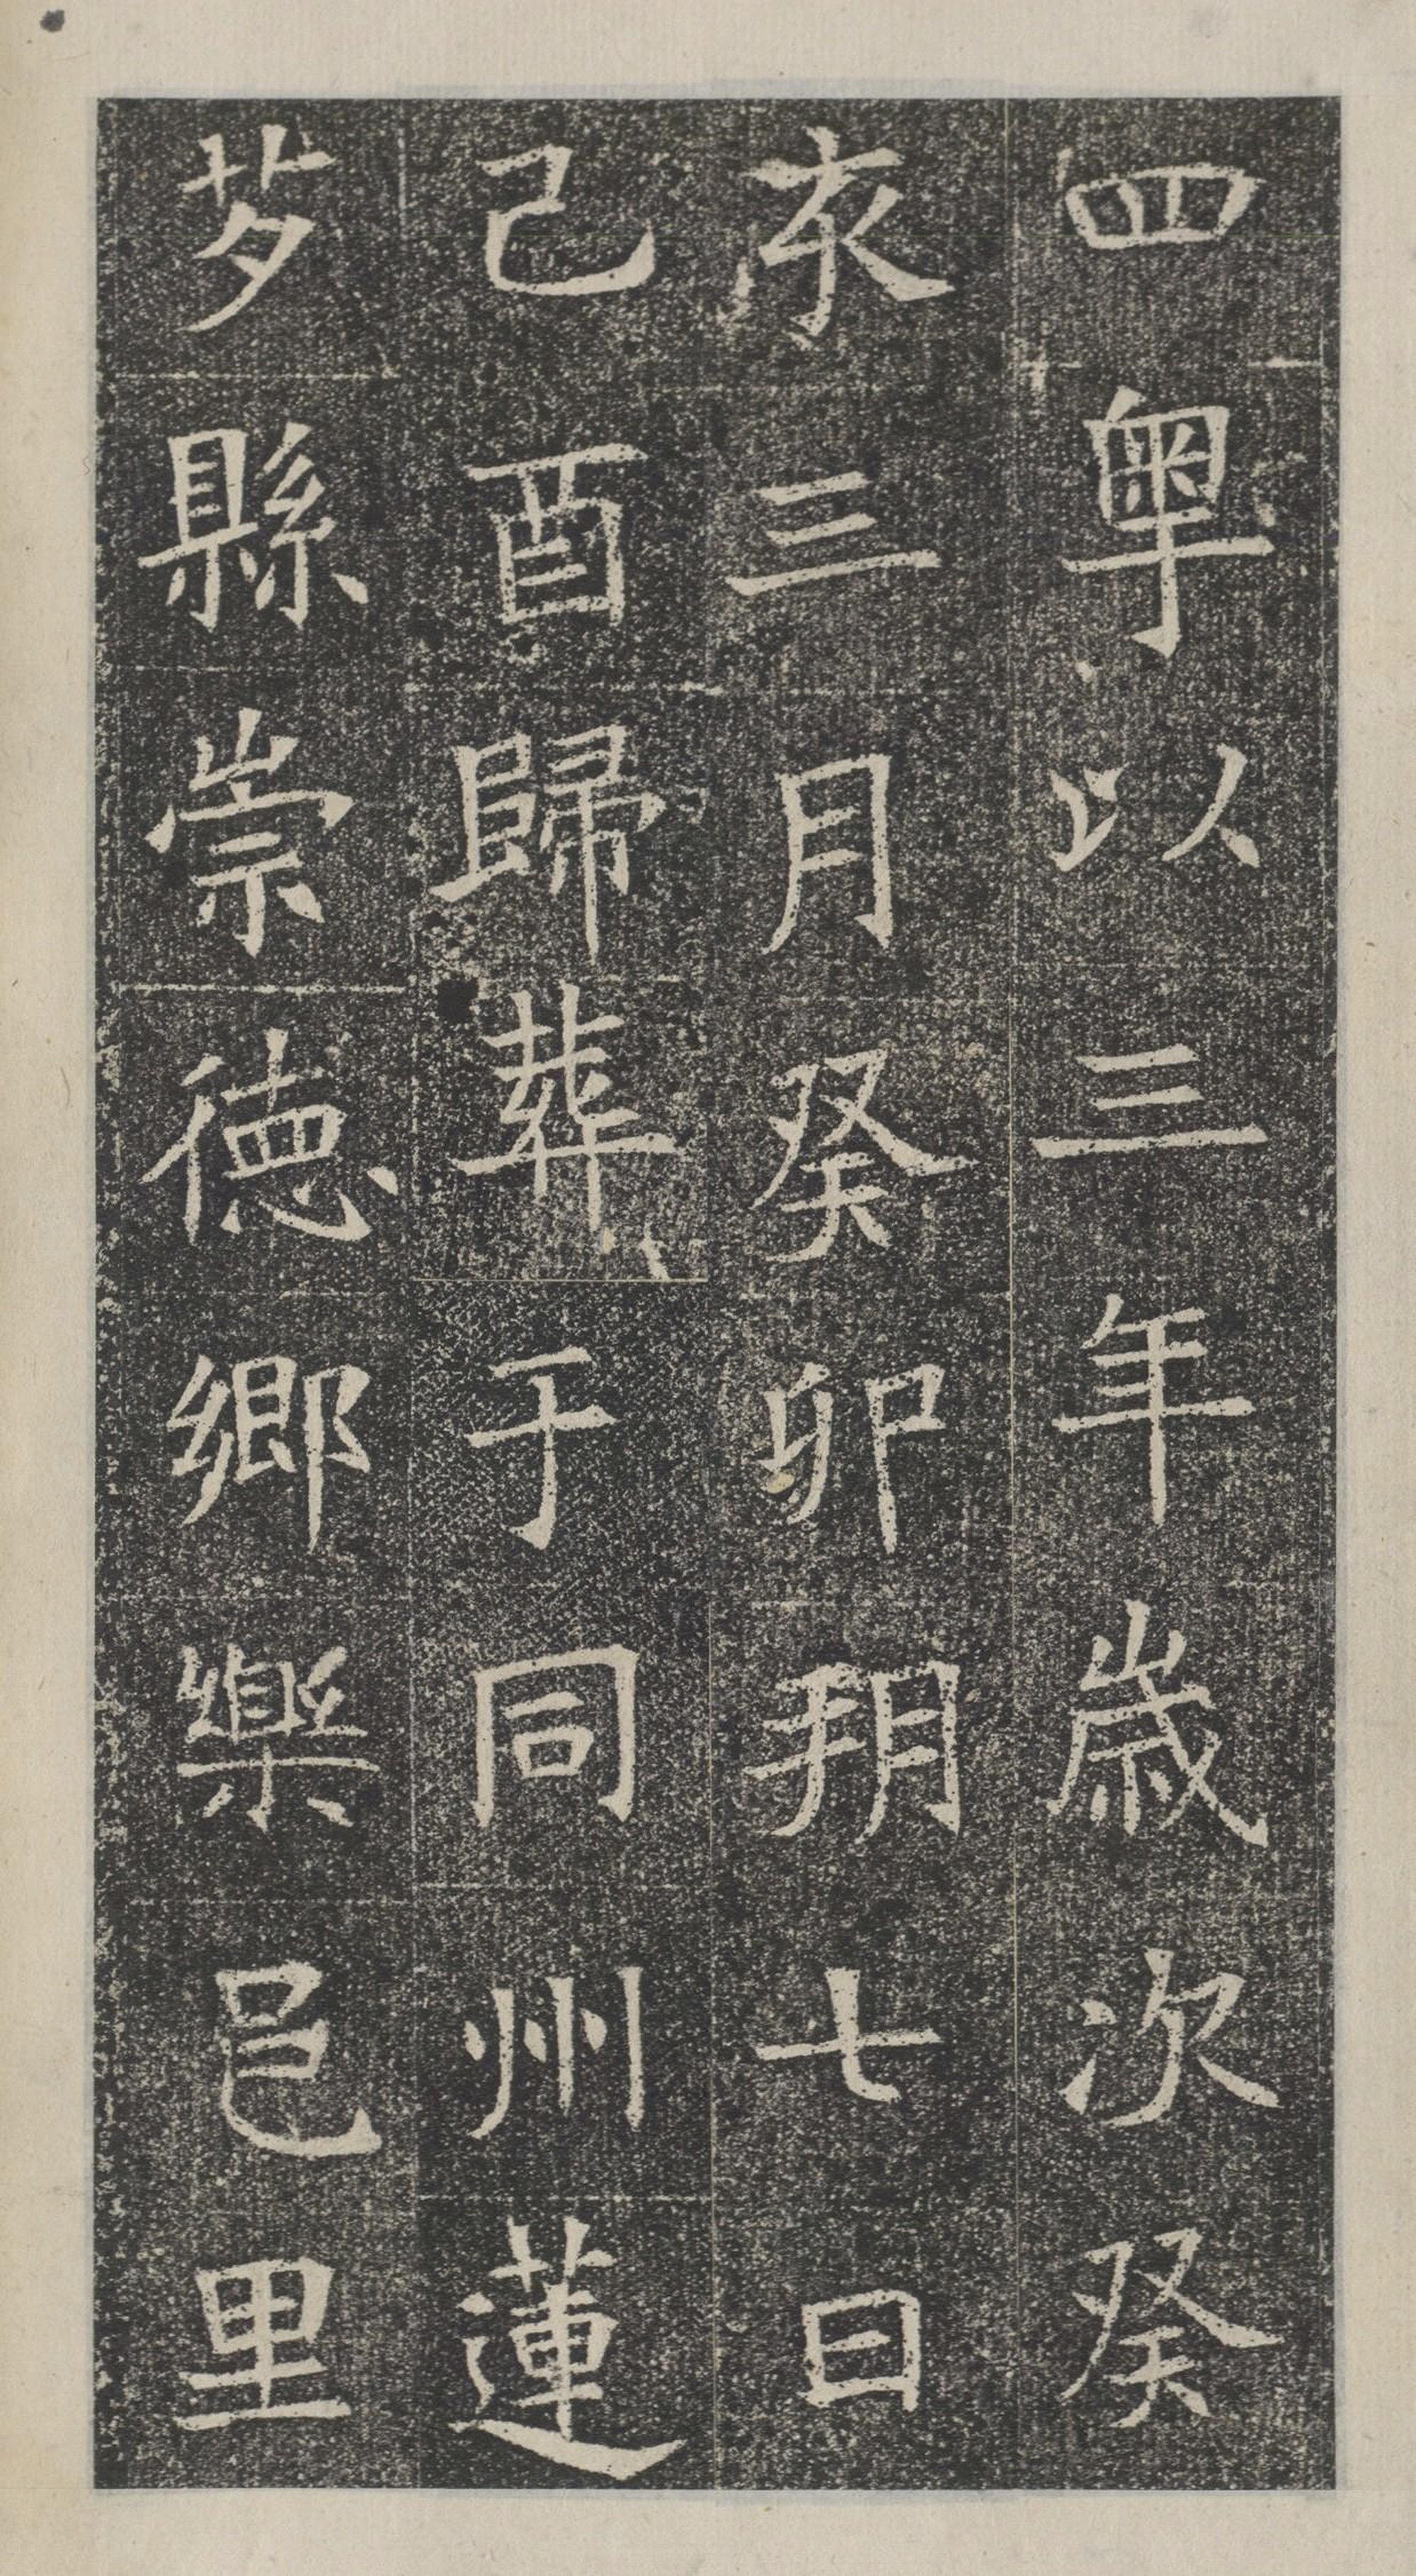 四粤以三年歲次癸
亥三月癸卯朔七日
己酉歸葬于同州蓮
芍縣崇德鄉樂邑里